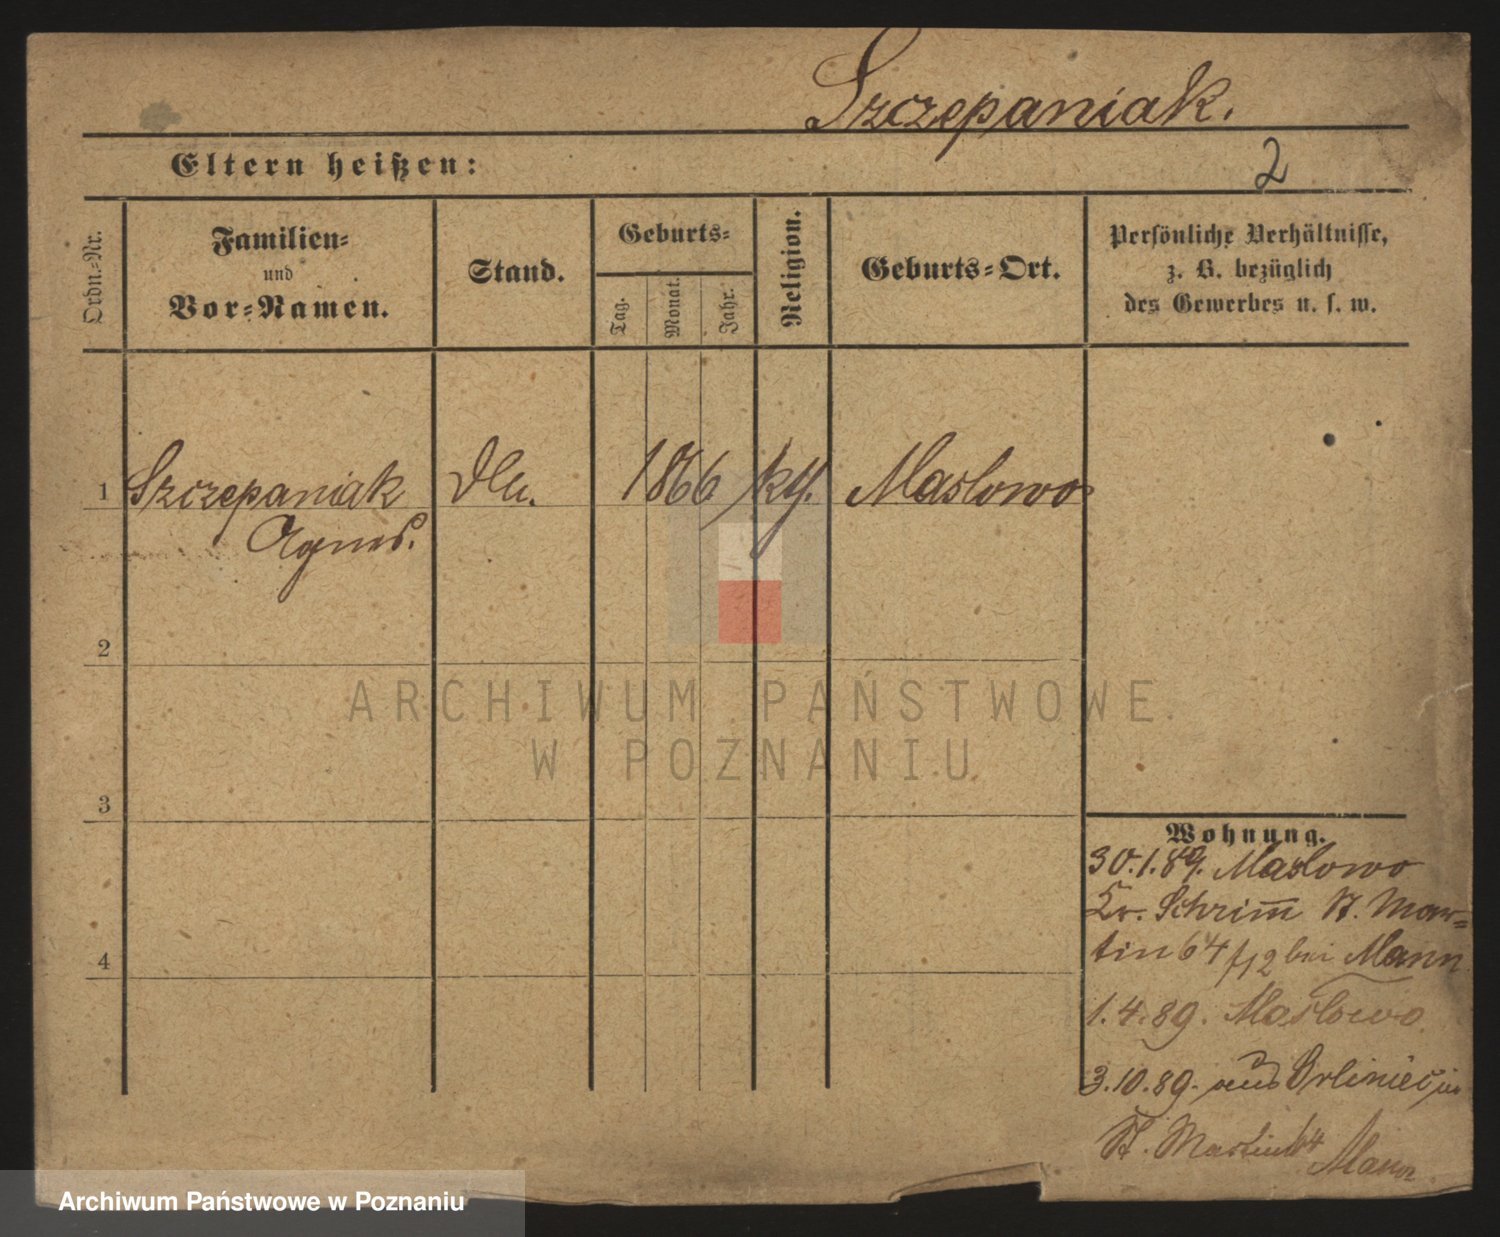 Szczepaniak.
Eltern heißen:
2
Ordn.-Nr.
Familien-
und
Vor-Namen.
Stand.
Geburts-
Tag.
Monat.
Jahr.
Religion.
Geburts-Ort.
Persönliche Verhältnisse,
z. B. bezüglich
des Gewerbes u. s. w.
1 Szczepaniak 1866 Maslowo
Agnes.
2
3
4
Wohnung.
30.1.89. Maslowo
Kr. Schrimm St. Mar-
tin 64 bei Mann
1.4.89. Maslowo
3.10.89. aus
St. Martin 64 Mann
ARCHIWUM PAŃSTWOWE
W POZNANIU
Archiwum Państwowe w Poznaniu